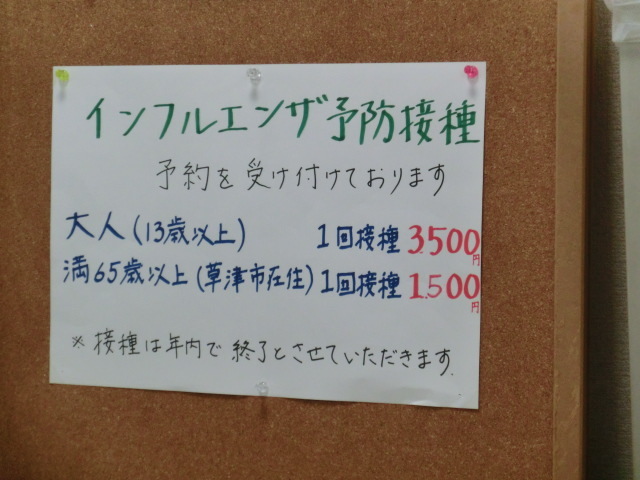 インフルエンザ予防接種
予約を受け付けております
大人(13歳以上) 1回接種 3,500円
満65歳以上(草津市在住) 1回接種 1,500円
※接種は年内で終了とさせていただきます.